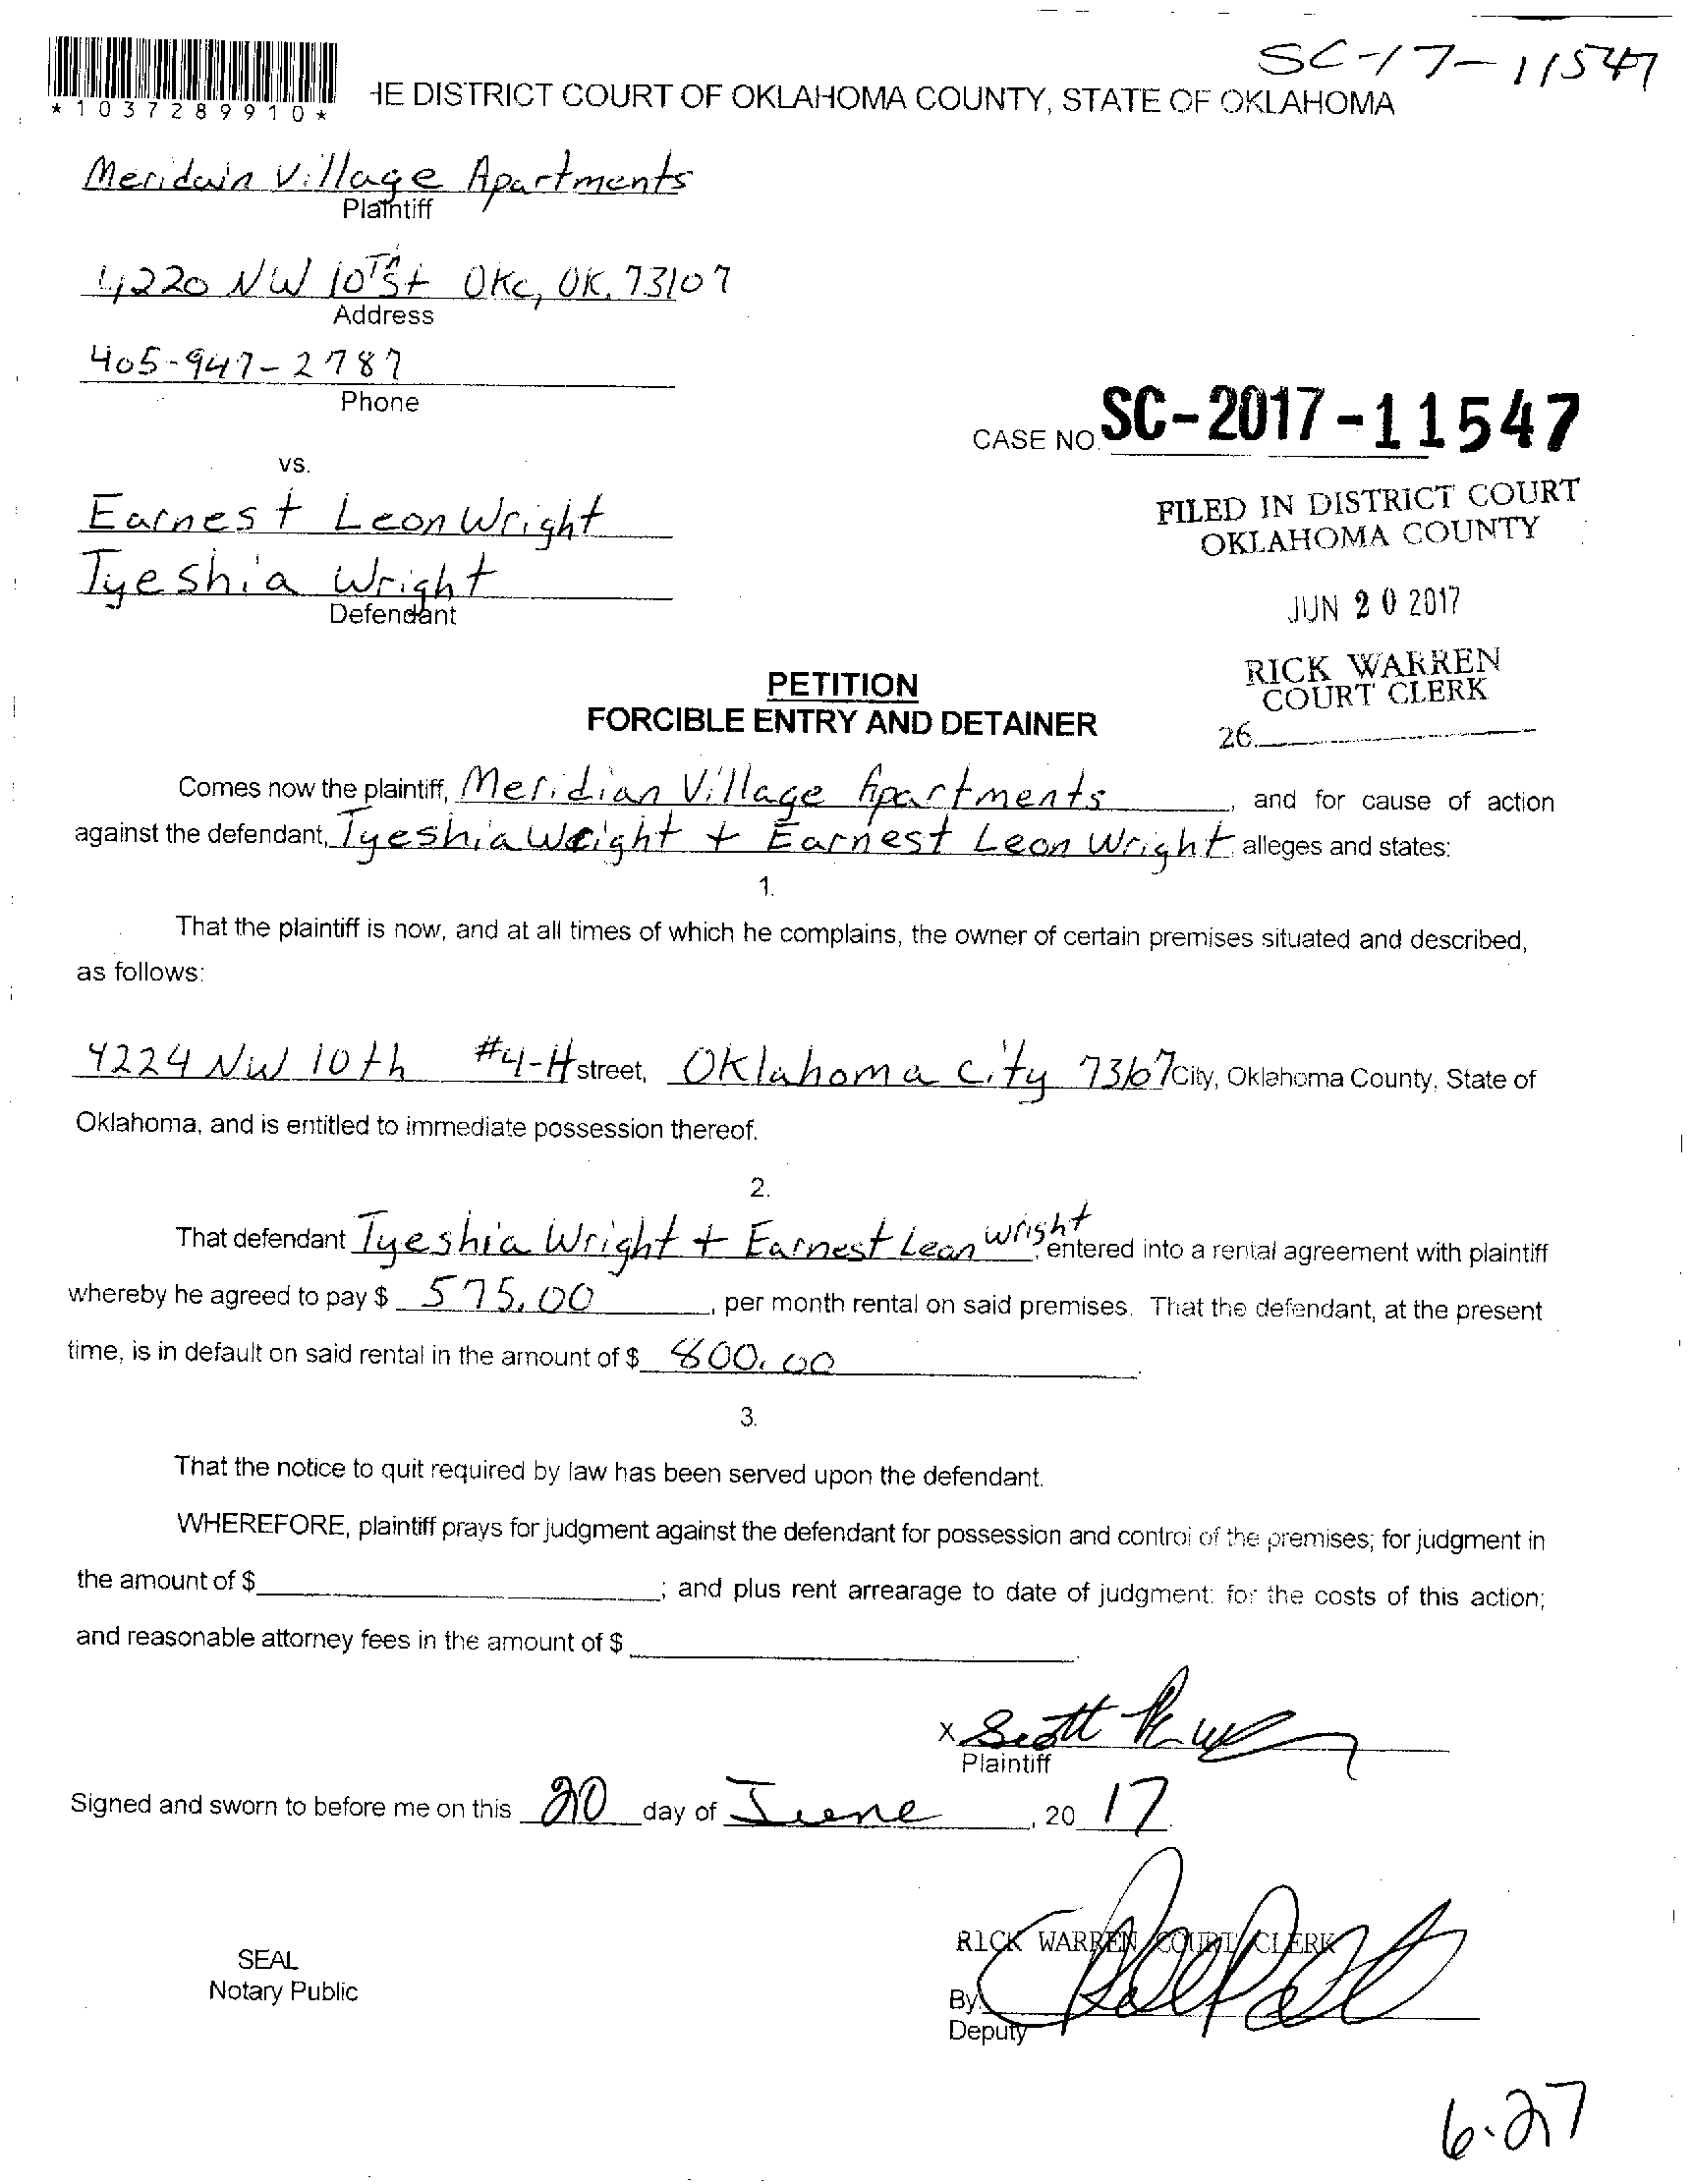 SC-17-11547
*1037289910*
HE DISTRICT COURT OF OKLAHOMA COUNTY, STATE OF OKLAHOMA
Meridain Village Apartments
Plaintiff
4220 NW 10th St OKC, OK. 73107
Address
405-947-2787
Phone
CASE NO. SC-2017-11547
vs.
Earnest Leon Wright
Tyeshia Wright
Defendant
FILED IN DISTRICT COURT
OKLAHOMA COUNTY
JUN 20 2017
RICK WARREN
COURT CLERK
26
PETITION
FORCIBLE ENTRY AND DETAINER
Comes now the plaintiff, Meridian Village Apartments, and for cause of action
against the defendant, Tyeshia Wright + Earnest Leon Wright alleges and states:
1.
That the plaintiff is now, and at all times of which he complains, the owner of certain premises situated and described,
as follows:
4224 NW 10th #4-H street, Oklahoma City 73107 City, Oklahoma County, State of
Oklahoma, and is entitled to immediate possession thereof.
2.
That defendant Tyeshia Wright + Earnest Leon Wright, entered into a rental agreement with plaintiff
whereby he agreed to pay $ 575.00, per month rental on said premises. That the defendant, at the present
time, is in default on said rental in the amount of $ 800.00.
3.
That the notice to quit required by law has been served upon the defendant.
WHEREFORE, plaintiff prays for judgment against the defendant for possession and control of the premises; for judgment in
the amount of $ ; and plus rent arrearage to date of judgment: for the costs of this action;
and reasonable attorney fees in the amount of $ .
X Scott
Plaintiff
Signed and sworn to before me on this 20 day of June, 20 17
SEAL
Notary Public
RICK WARREN COURT CLERK
By
Deputy
6.27